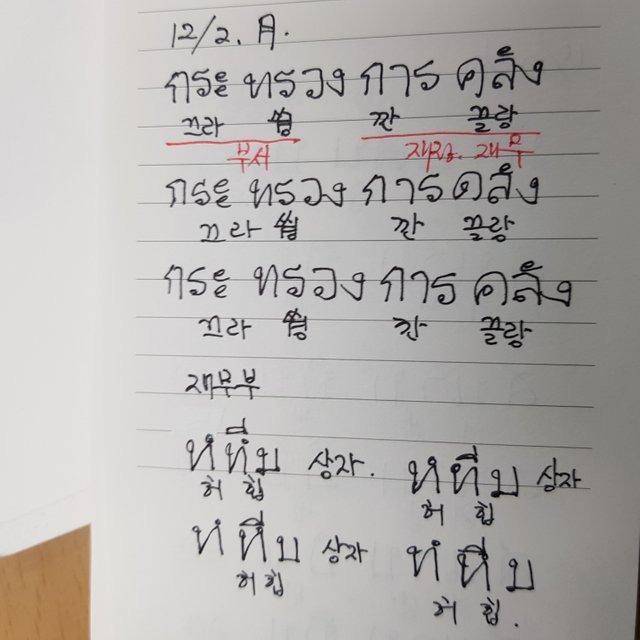 12/2. 月.
กระ ทรวง การ คลัง
끄라 깐 끌랑
부서 재정. 재무
กระ ทรวง การ คลัง
끄라 깐 끌랑
กระ ทรวง การ คลัง
끄라 깐 끌랑
재무부
ห หีบ 상자. ห หีบ 상자
허 힙 허 힙
ห หีบ 상자 ห หีบ
허 힙 허 힙.